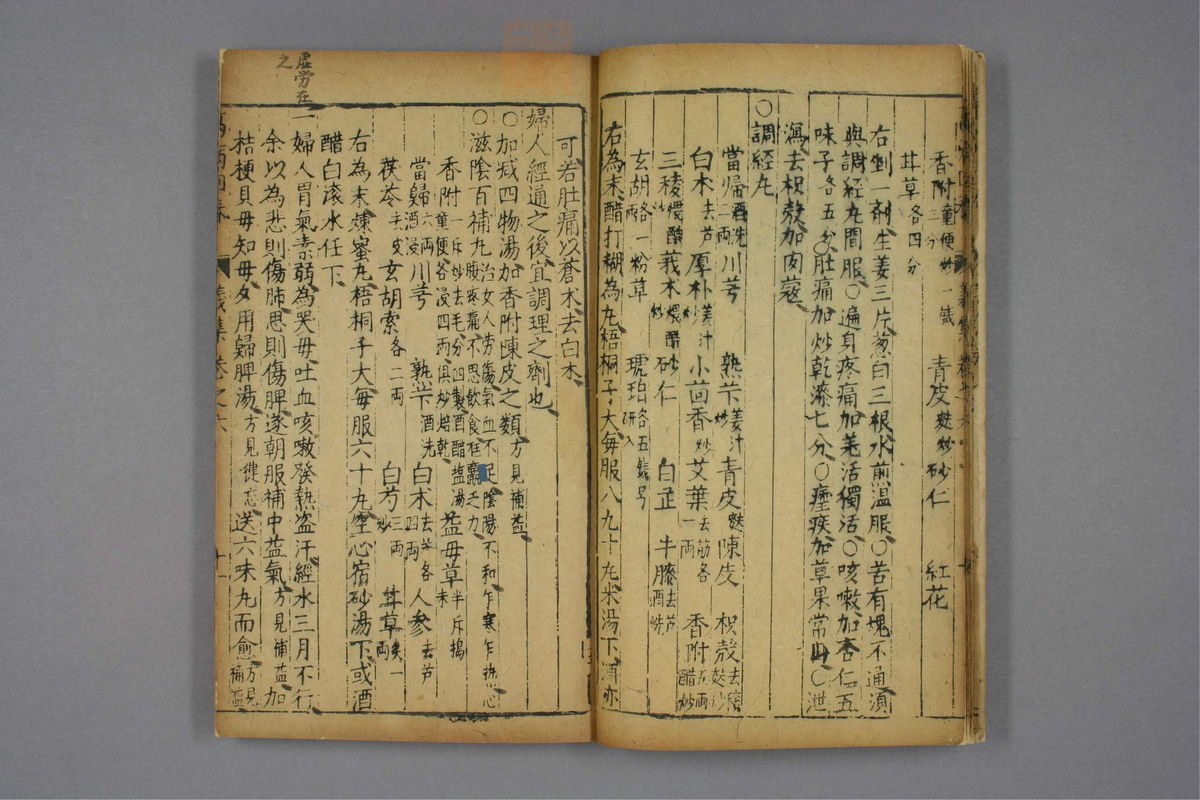 香附童便炒三分 一錢 青皮麩炒 砂仁 紅花
甘草各四分
右剉一劑生姜三片葱白三根水煎溫服〇若有塊不通須
與調經丸間服〇遍身疼痛加羌活獨活〇咳嗽加杏仁五
味子各五分〇肚痛加炒乾漆七分〇瘧疾加草果常山〇泄
瀉去枳殼加肉蔻
〇調經丸
當歸酒洗二兩 川芎 熟芐姜汁炒 青皮麩 陳皮 枳殼去穰麩炒
白朮去芦 厚朴姜汁炒 小茴香炒 艾葉去筋各一兩 香附五兩醋炒
三稜煨醋炒 莪朮煨醋炒 砂仁 白芷 牛膝去芦酒洗
玄胡各一兩 粉草 琥珀各五錢另研入
右為末醋打糊為丸梧桐子大每服八九十丸米湯下酒亦
可若肚痛以蒼朮去白朮
婦人經通之後宜調理之劑也
〇加减四物湯加香附陳皮之類方見補益
〇滋陰百補丸治女人劳傷氣血不足陰陽不和乍寒乍熱心腹疼痛不思飲食尪羸乏力
香附一斤炒去毛分四製酒醋塩湯童便各浸四兩俱炒焙乾 益母草半斤搗末
當歸六兩酒浸 川芎 熟芐酒洗 白朮去芦各四兩 人參去芦
茯苓去皮 玄胡索各二兩 白芍三兩炒 甘草炙一兩
右為末煉蜜丸梧桐子大每服六十九空心宿砂湯下或酒
醋白滾水任下
一婦人胃氣素弱為哭母吐血咳嗽發熱盗汗經水三月不行
余以為悲則傷肺思則傷脾遂朝服補中益氣方見補益加
桔梗貝母知母夕用歸脾湯方見健忘送六味丸而愈方見補益
虛労在
之